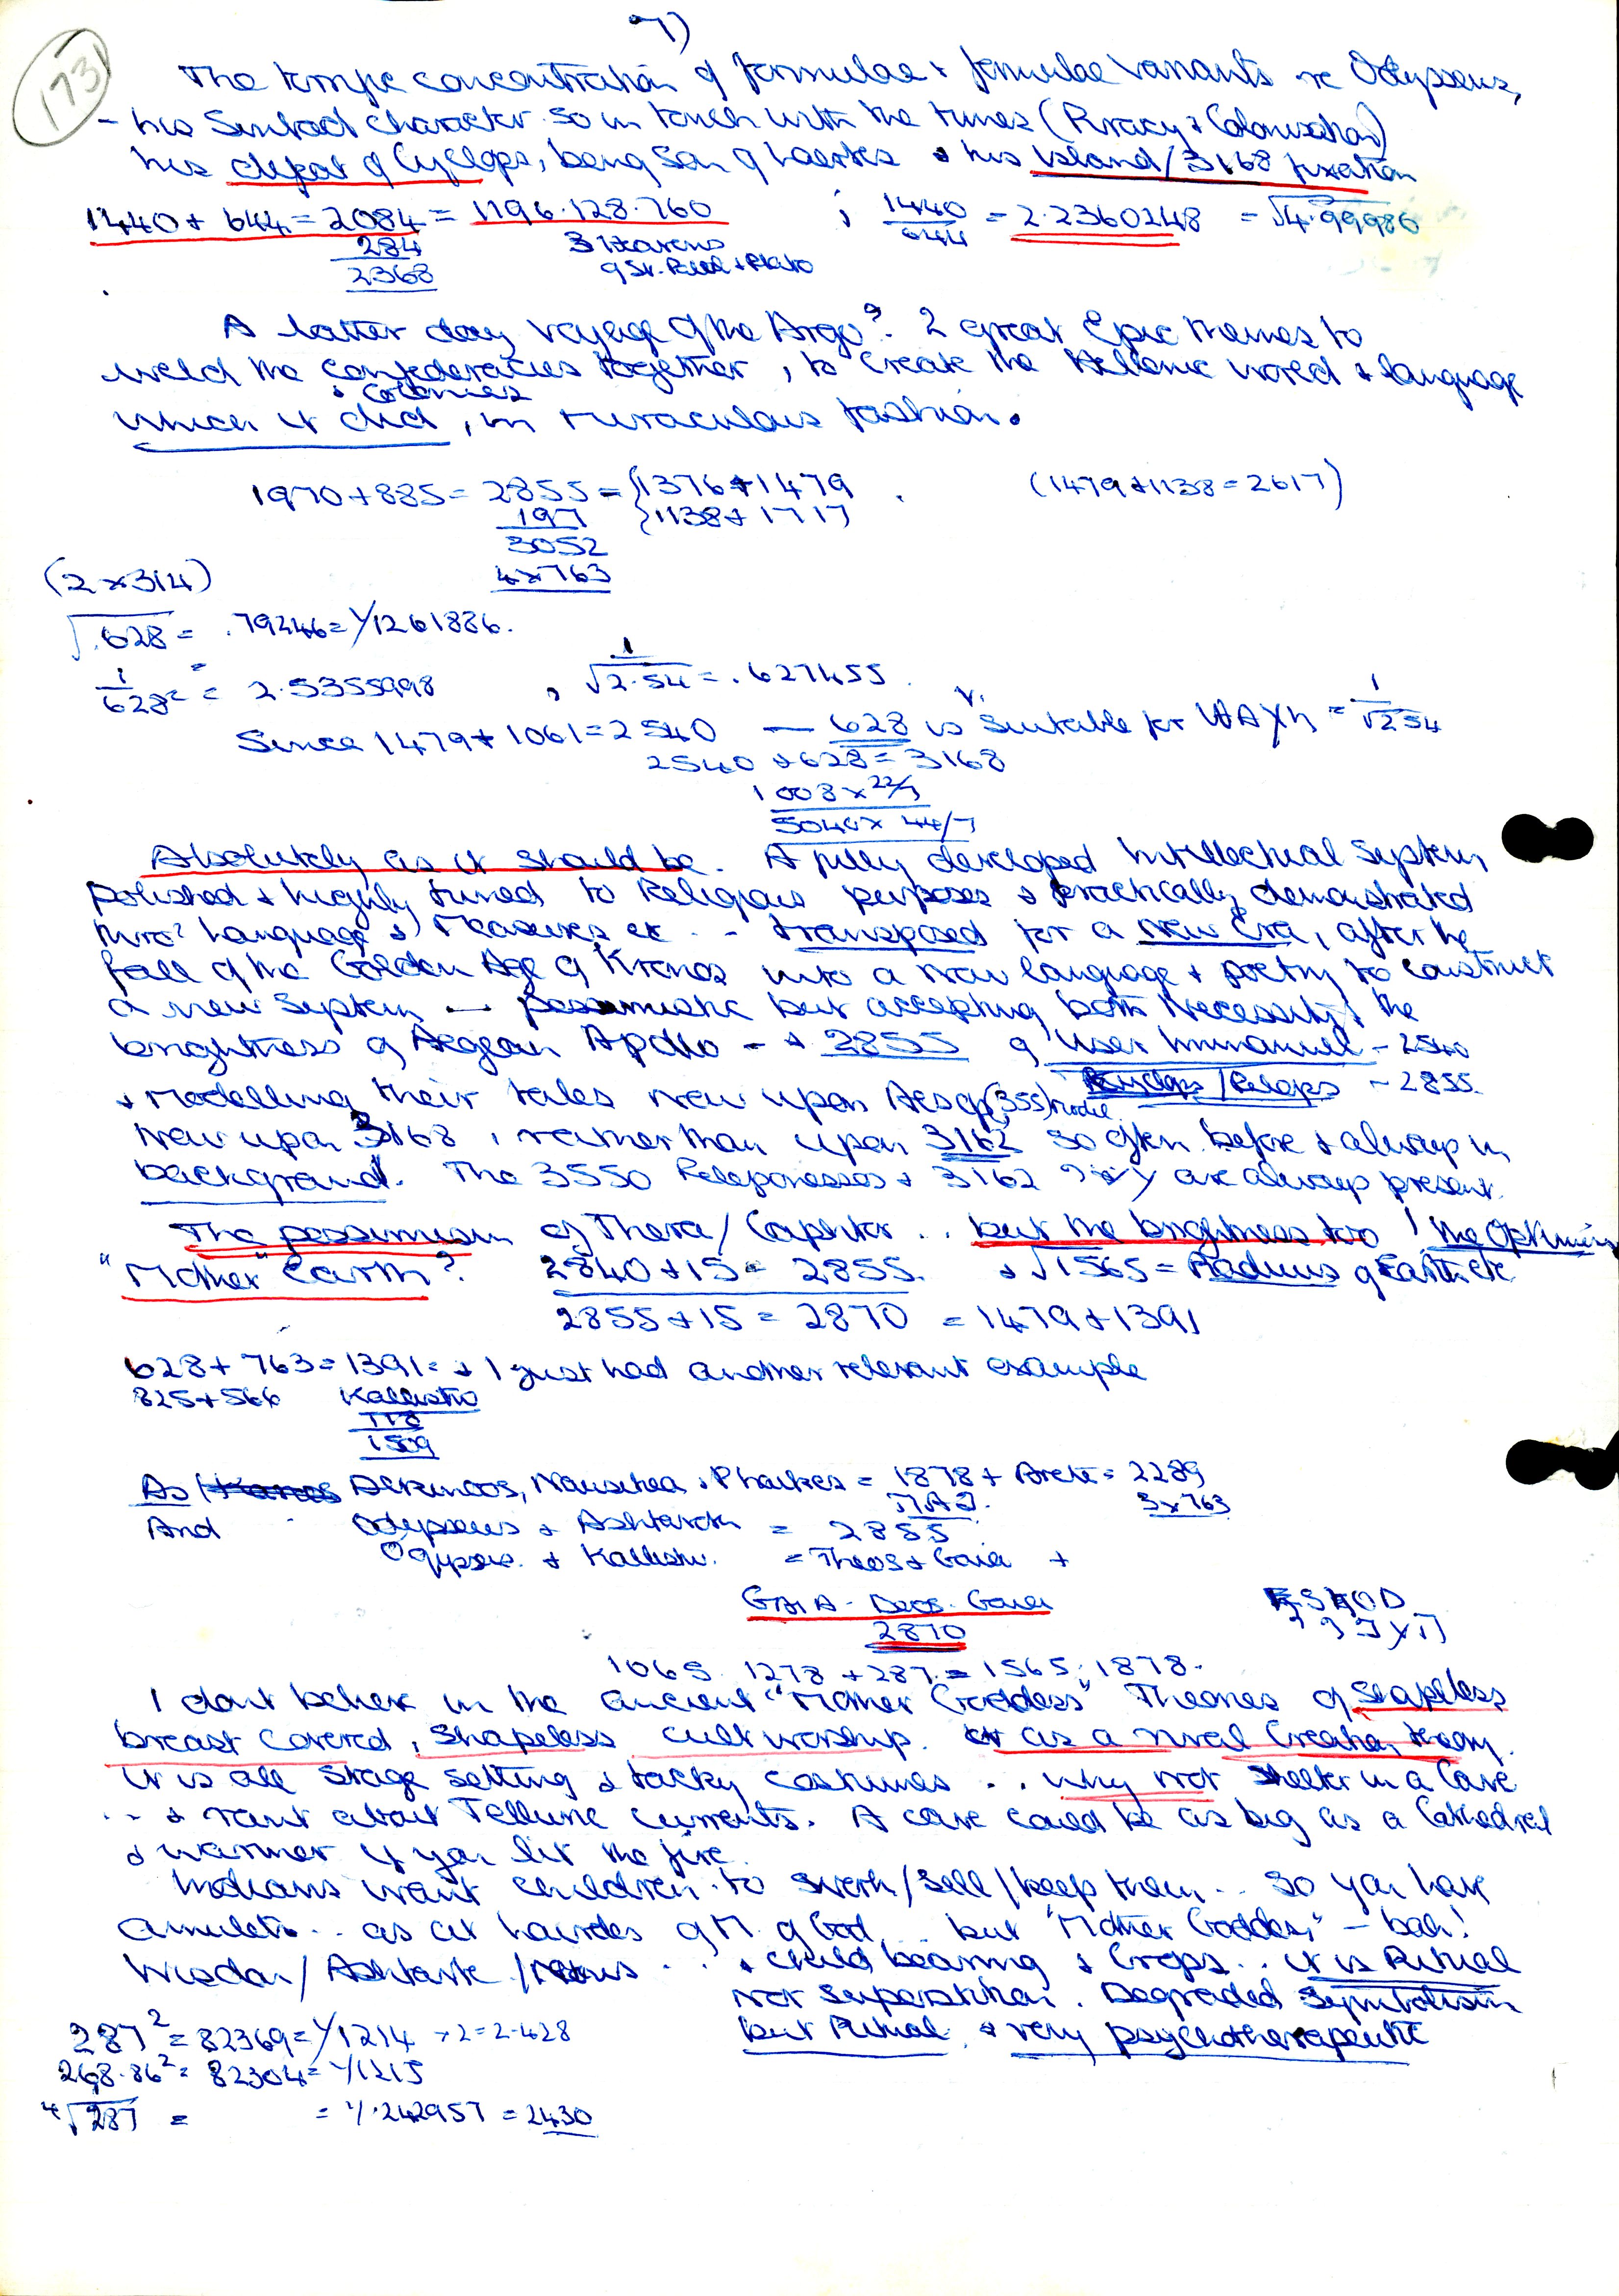 7)
173
The concentration of formulae + formulae variants re Odysseus,
- his Sinbad character so in touch with the times (Piracy & Colonisation)
his defeat of Cyclops, being Son of Laertes & his Island/3168 fixation
1440 + 644 = 2084 = 1196.128.760 ; 1440/644 = 2.2360248 = √4.99980
284 3 Heavens
2368 of St. Paul + Plato
A latter day voyage of the Argo? 2 great Epic themes to
weld the confederacies together, to create the Hellenic world & language
& Colonies
which it did, in miraculous fashion.
1970 + 885 = 2855 = {1376 + 1479 . (1479 + 1138 = 2617)
197 {1138 + 1717
3052
4 x 763
(2 x 314)
√.628 = .79246 = 1/1261886.
1/628² = 2.5355998 , 1/√2.54 = .627455
Since 1479 + 1061 = 2540 — 628 is v. suitable for = 1/√254
2540 + 628 = 3168
1008 x 22/7
504 x 44/7
Absolutely as it should be. A fully developed intellectual System,
polished & highly tuned to Religious purposes & practically demonstrated
thro' language & Measures etc - transposed for a new Era, after the
fall of the Golden Age of Kronos into a new language & poetry to construct
a new System — pessimistic but accepting both Necessity & the
brightness of Aegean Apollo - + 2855 of User Immanuel - 2540
Cyclops / Pelops - 2855
& Modelling their tales now upon Aesop (355)
Now upon 3168, rather than upon 3162 so often before & always in
background. The 3550 Peloponessos & 3162 are always present.
The pessimism of Thera / Caphtor .. but the brightness too! the Optimism
"Mother" Earth? 2840 + 15 = 2855. & √1565 = Radius of Earth etc
2855 + 15 = 2870 = 1479 + 1391
628 + 763 = 1391 = & I just had another relevant example
825 + 566 Kallisto
118
1509
As Alkinoos, Nausikaa, Phaikes = 1878 + Arete = 2289
3 x 763
And Odysseus + Ashtaroth = 2855
Ogygia + Kallisto. = Theos + Gaia +
GAIA - Deos. Gaia
2870
1065. 1278 + 287 = 1565, 1878.
I dont believe in the ancient "Mother Goddess" Theories of shapeless
breast covered, shapeless cult worship. or as a rival Creation theory.
It is all Stage setting & tacky costumes .. why not shelter in a Cave
.. & rant about Telluric Currents. A cave could be as big as a Cathedral
& warmer if you lit the fire.
Indians want children to /sell/keep them .. So you have
amulets .. as at of M. of God .. but "Mother Goddess" - bah!
Wisdom / Ashtarte / Venus .. & child bearing & Crops .. it is Ritual
not superstition. Degraded Symbolism
but Ritual & very psychotherapeutic
287² = 82369 = 1/1214 x 2 = 2.428
268.86² = 82304 = 1/1215
⁴√287 = = 1/.242957 = 2430